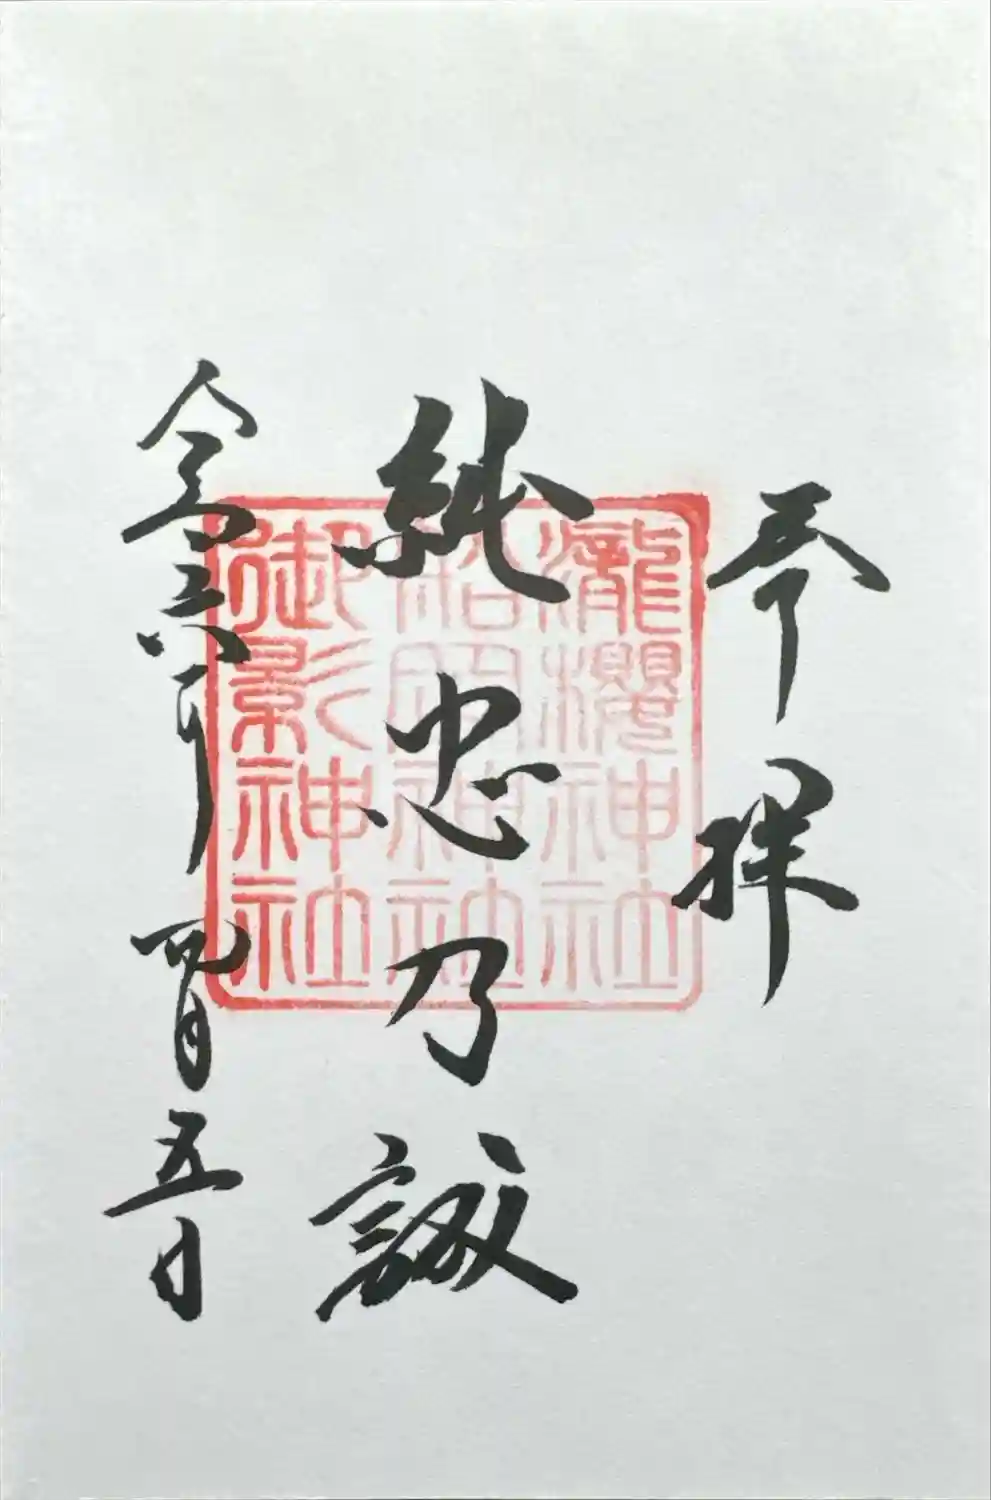 奉拝
瀧櫻神社
松岡神社
御影神社
純忠乃誠
令和六年 四月五日